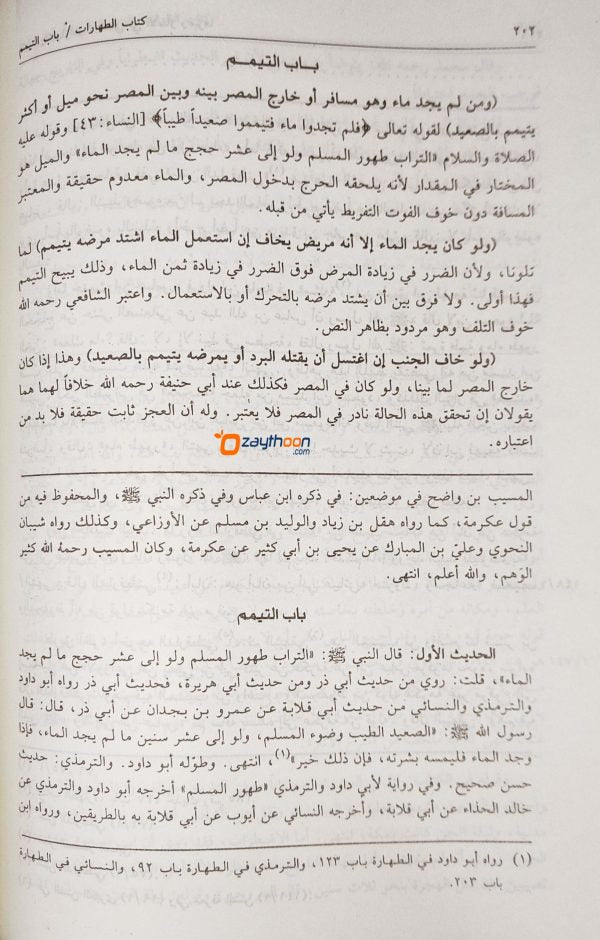 ٢٠٢
كتاب الطهارات / باب التيمم
باب التيمم
(ومن لم يجد ماء وهو مسافر أو خارج المصر بينه وبين المصر نحو ميل أو أكثر
يتيمم بالصعيد) لقوله تعالى ﴿فلم تجدوا ماء فتيمموا صعيداً طيباً﴾ [النساء: ٤٣] وقوله عليه
الصلاة والسلام «التراب طهور المسلم ولو إلى عشر حجج ما لم يجد الماء» والميل هو
المختار في المقدار لأنه يلحقه الحرج بدخول المصر، والماء معدوم حقيقة والمعتبر
المسافة دون خوف الفوت التفريط يأتي من قبله.
(ولو كان يجد الماء إلا أنه مريض يخاف إن استعمل الماء اشتد مرضه يتيمم) لما
تلونا، ولأن الضرر في زيادة المرض فوق الضرر في زيادة ثمن الماء، وذلك يبيح التيمم
فهذا أولى. ولا فرق بين أن يشتد مرضه بالتحرك أو بالاستعمال. واعتبر الشافعي رحمه الله
خوف التلف وهو مردود بظاهر النص.
(ولو خاف الجنب إن اغتسل أن يقتله البرد أو يمرضه يتيمم بالصعيد) وهذا إذا كان
خارج المصر لما بينا، ولو كان في المصر فكذلك عند أبي حنيفة رحمه الله خلافاً لهما هما
يقولان إن تحقق هذه الحالة نادر في المصر فلا يعتبر. وله أن العجز ثابت حقيقة فلا بد من
اعتباره.
zaythoon
.com
المسيب بن واضح في موضعين: في ذكره ابن عباس وفي ذكره النبي ﷺ، والمحفوظ فيه من
قول عكرمة، كما رواه هقل بن زياد والوليد بن مسلم عن الأوزاعي، وكذلك رواه شيبان
النحوي وعليّ بن المبارك عن يحيى بن أبي كثير عن عكرمة، وكان المسيب رحمهُ الله كثير
الوَهم، والله أعلم، انتهى.
باب التيمم
الحديث الأول: قال النبي ﷺ: «التراب طهور المسلم ولو إلى عشر حجج ما لم يجد
الماء»، قلت: روي من حديث أبي ذر ومن حديث أبي هريرة، فحديث أبي ذر رواه أبو داود
والترمذي والنسائي من حديث أبي قلابة عن عمرو بن بجدان عن أبي ذر، قال: قال
رسول الله ﷺ: «الصعيد الطيب وضوء المسلم، ولو إلى عشر سنين ما لم يجد الماء، فإذا
وجد الماء فليمسه بشرته، فإن ذلك خير»(١)، انتهى. وطوّله أبو داود. والترمذي: حديث
حسن صحيح. وفي رواية لأبي داود والترمذي «طهور المسلم» أخرجه أبو داود والترمذي عن
خالد الحذاء عن أبي قلابة، وأخرجه النسائي عن أيوب عن أبي قلابة به بالطريقين، ورواه ابن
(١) رواه أبو داود في الطهارة باب ١٢٣، والترمذي في الطهارة باب ٩٢، والنسائي في الطهارة
باب ٢٠٣.